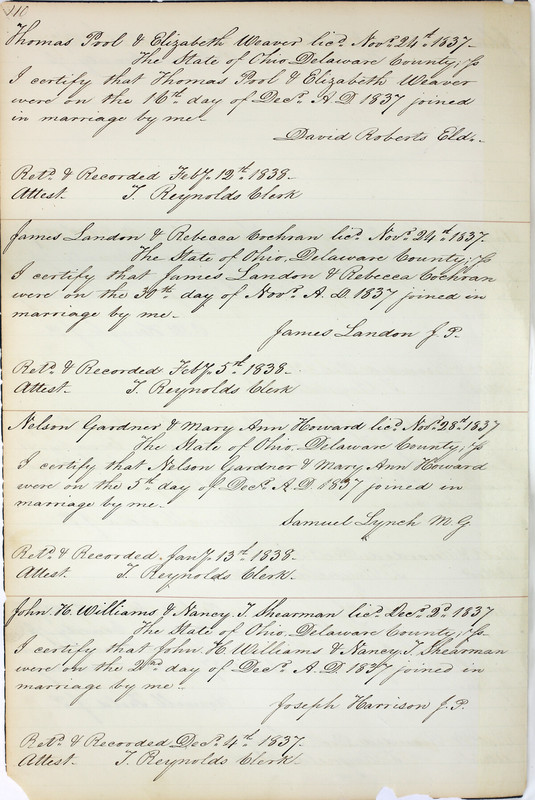 110
Thomas Pool & Elizabeth Weaver licd. Novr. 24th. 1837.
The State of Ohio Delaware County; Ss
I certify that Thomas Pool & Elizabeth Weaver
were on the 16th day of Decr. A. D. 1837 joined
in marriage by me.
David Roberts Eld.
Retd. & Recorded Feby. 12th. 1838.
Attest. T. Reynolds Clerk
James Landon & Rebecca Cochran licd. Novr. 24th. 1837.
The State of Ohio, Delaware County; Ss
I certify that James Landon & Rebecca Cochran
were on the 30th day of Novr. A. D. 1837 joined in
marriage by me.
James Landon J. P.
Retd. & Recorded Feby. 5th. 1838.
Attest. T. Reynolds Clerk
Nelson Gardner & Mary Ann Howard licd. Novr. 28th 1837
The State of Ohio. Delaware County; Ss
I certify that Nelson Gardner & Mary Ann Howard
were on the 5th day of Decr. A. D. 1837 joined in
marriage by me.
Samuel Lynch M. G
Retd. & Recorded Jany. 13th. 1838.
Attest. T. Reynolds Clerk.
John H. Williams & Nancy T. Shearman licd. Decr. 2d. 1837
The State of Ohio. Delaware County; Ss
I certify that John H. Williams & Nancy T. Shearman
were on the 2nd day of Decr. A. D. 1837 joined in
marriage by me.
Joseph Harrison J. P.
Retd. & Recorded Decr. 4th. 1837.
Attest. T. Reynolds Clerk.